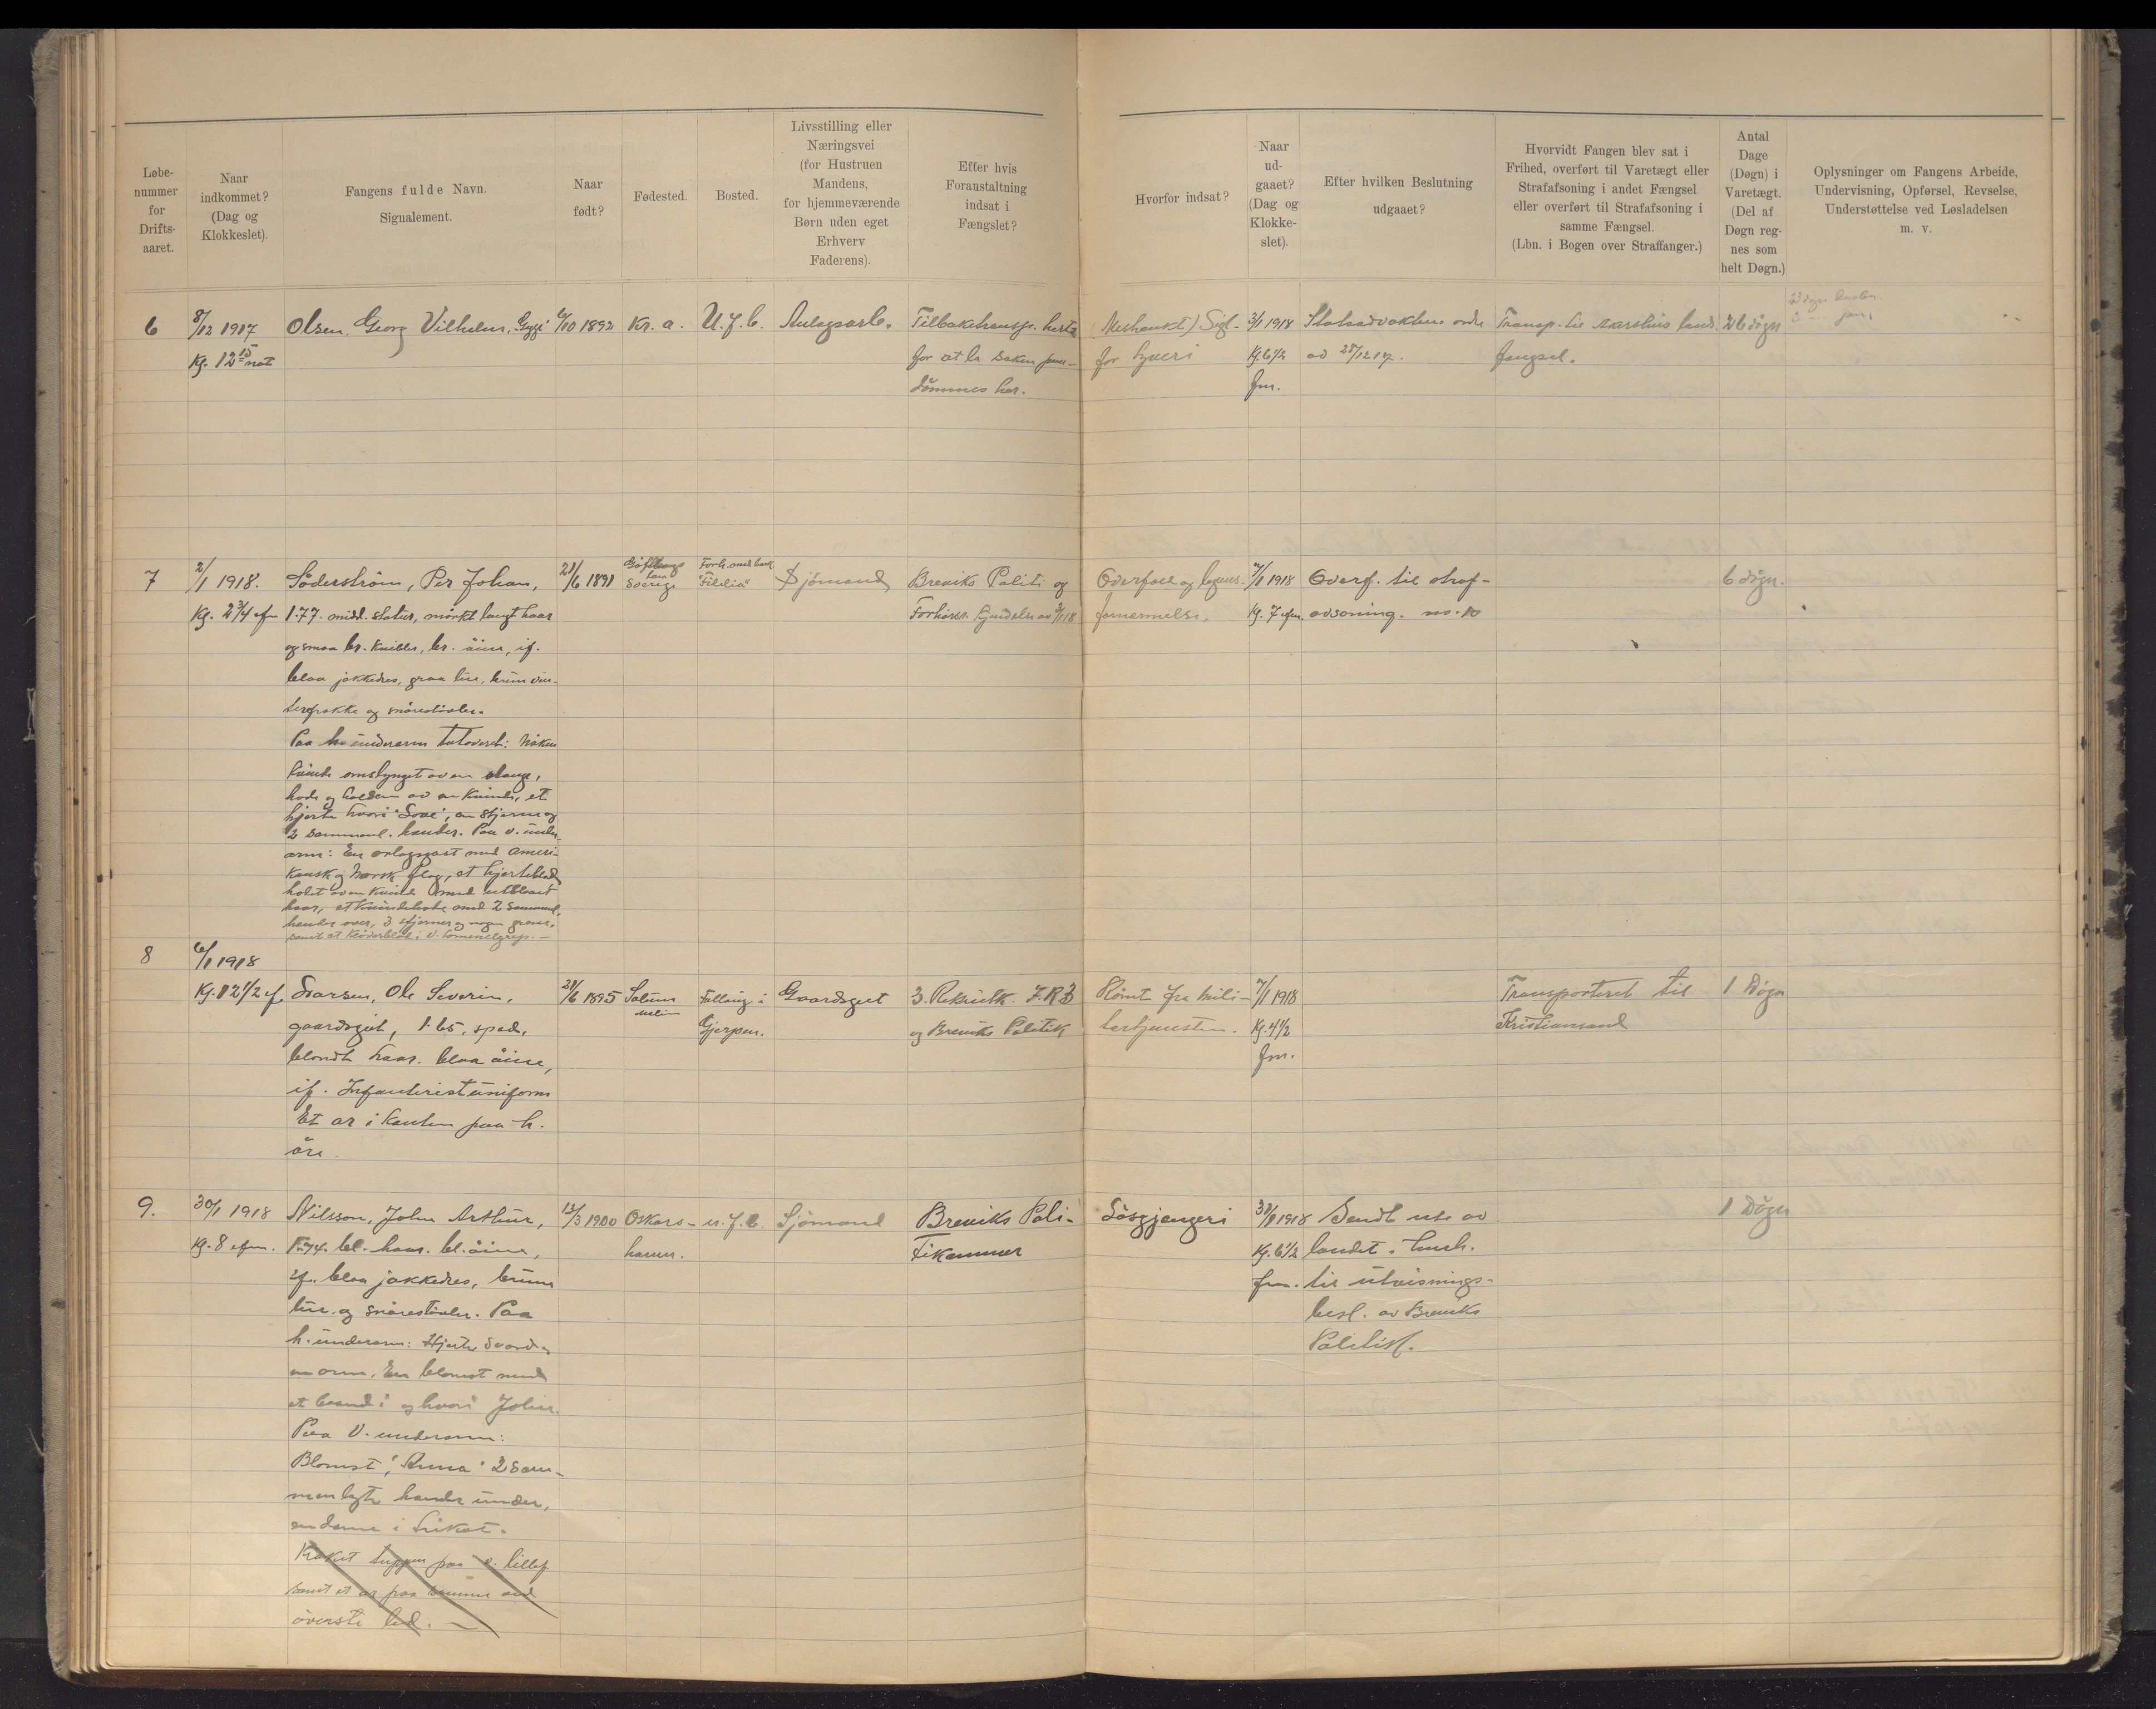 Løbe-
nummer
for
Drifts-
aaret.
Naar
indkommet?
(Dag og
Klokkeslet).
Fangens fulde Navn.
Signalement.
Naar
født?
Fødested.
Bosted.
Livsstilling eller
Næringsvei
(for Hustruen
Mandens,
for hjemmeværende
Børn uden eget
Erhverv
Faderens).
Efter hvis
Foranstaltning
indsat i
Fængslet?
Hvorfor indsat?
Naar
ud-
gaaet?
(Dag og
Klokke-
slet).
Efter hvilken Beslutning
udgaaet?
Hvorvidt Fangen blev sat i
Frihed, overført til Varetægt eller
Strafafsoning i andet Fængsel
eller overført til Strafafsoning i
samme Fængsel.
(Lbn. i Bogen over Straffanger.)
Antal
Dage
(Døgn) i
Varetægt.
(Del af
Døgn reg-
nes som
helt Døgn.)
Oplysninger om Fangens Arbeide,
Undervisning, Opførsel, Revselse,
Understøttelse ved Løsladelsen
m. v.
6
8/12 1917
Kl. 12 15 nat
Olsen, Georg Vilhelm,
6/10 1892
Kr. a.
U. f. b.
Anlagsarb.
Tilbakehentsg.
for at la saken
dömmes her.
Sigt.
for tyveri
3/1 1918
Kl. 6 1/2
fm.
Statsadvoktens ordre
av 28/12 17.
Transp. til Aarstins lands
fængsel.
26 dögn
7
2/1 1918.
Kl. 2 3/4 efm
Söderström, Per Johan,
1.77. midd. statur, mörkt langt haar
og smaa br. knibler, br. öine, if.
blaa jakkedres, graa lue, brun vin-
terfrakke og snörestövler.
Paa h. underarm tatoveret: Naken
kvinde omslynget av en slange,
hode og halsen av en kvinde, et
hjerte hvori "Love", en stjerne og
2 sammenl. hender. Paa v. under-
arm: En orlogsgast med ameri-
kansk og norsk flag, et hjerteblad
holdt av en kvinde med utslaaet
haar, et kvindehode med 2 sammenl.
hender over, 3 stjerner og nogen grene,
samt et klöverblad i v. tommelgrep. —
21/6 1891
Sverige
"Fidelia"
Sjömand
Breviks Politi og
Forhörsr. kjendelse av 3/1 18
Overfald og legems-
fornærmelse.
7/1 1918
Kl. 7 efm.
Overf. til straf-
avsoning. no. 10
6 dögn.
8
6/1 1918
Kl. 12 1/2 ef.
Svarsen, Ole Severin,
gaardsgut, 1.65, sped,
blondt haar. blaa öine,
if. Infanteristuniform
Et ar i kanten paa h.
öre.
28/6 1895
Solum
i
Gjerpen.
Gaardsgut
3. Rekrutk. I.R.3
og Breviks Politik
Römt fra mili-
tærtjenesten.
7/1 1918
Kl. 4 1/2
fm.
Transporteret til
Kristiansand
1 Dögn
9.
30/1 1918
Kl. 8 efm.
Nilsson, John Arthur,
1.74. bl. haar. bl. öine,
if. blaa jakkedres, brun
lue og snörestövler. Paa
h. underarm: Hjerte sverd og
en orm. En blomst med
et baand i og hvori John.
Paa v. underarm:
Blomst, "Anna" 2 sam-
menlagte hender under,
en dame i trikot.
Kroket tuppen paa v. lillef.
samt et ar paa samme ved
överste led. —
13/3 1900
Oskars-
hamn.
u. f. b.
Sjömand
Breviks Poli-
tikammer
Lösgjengeri
31/1 1918
Kl. 6 1/2
fm.
Sendt ut av
landet i henh.
til utvisnings-
besl. av Breviks
Politik.
1 Dögn